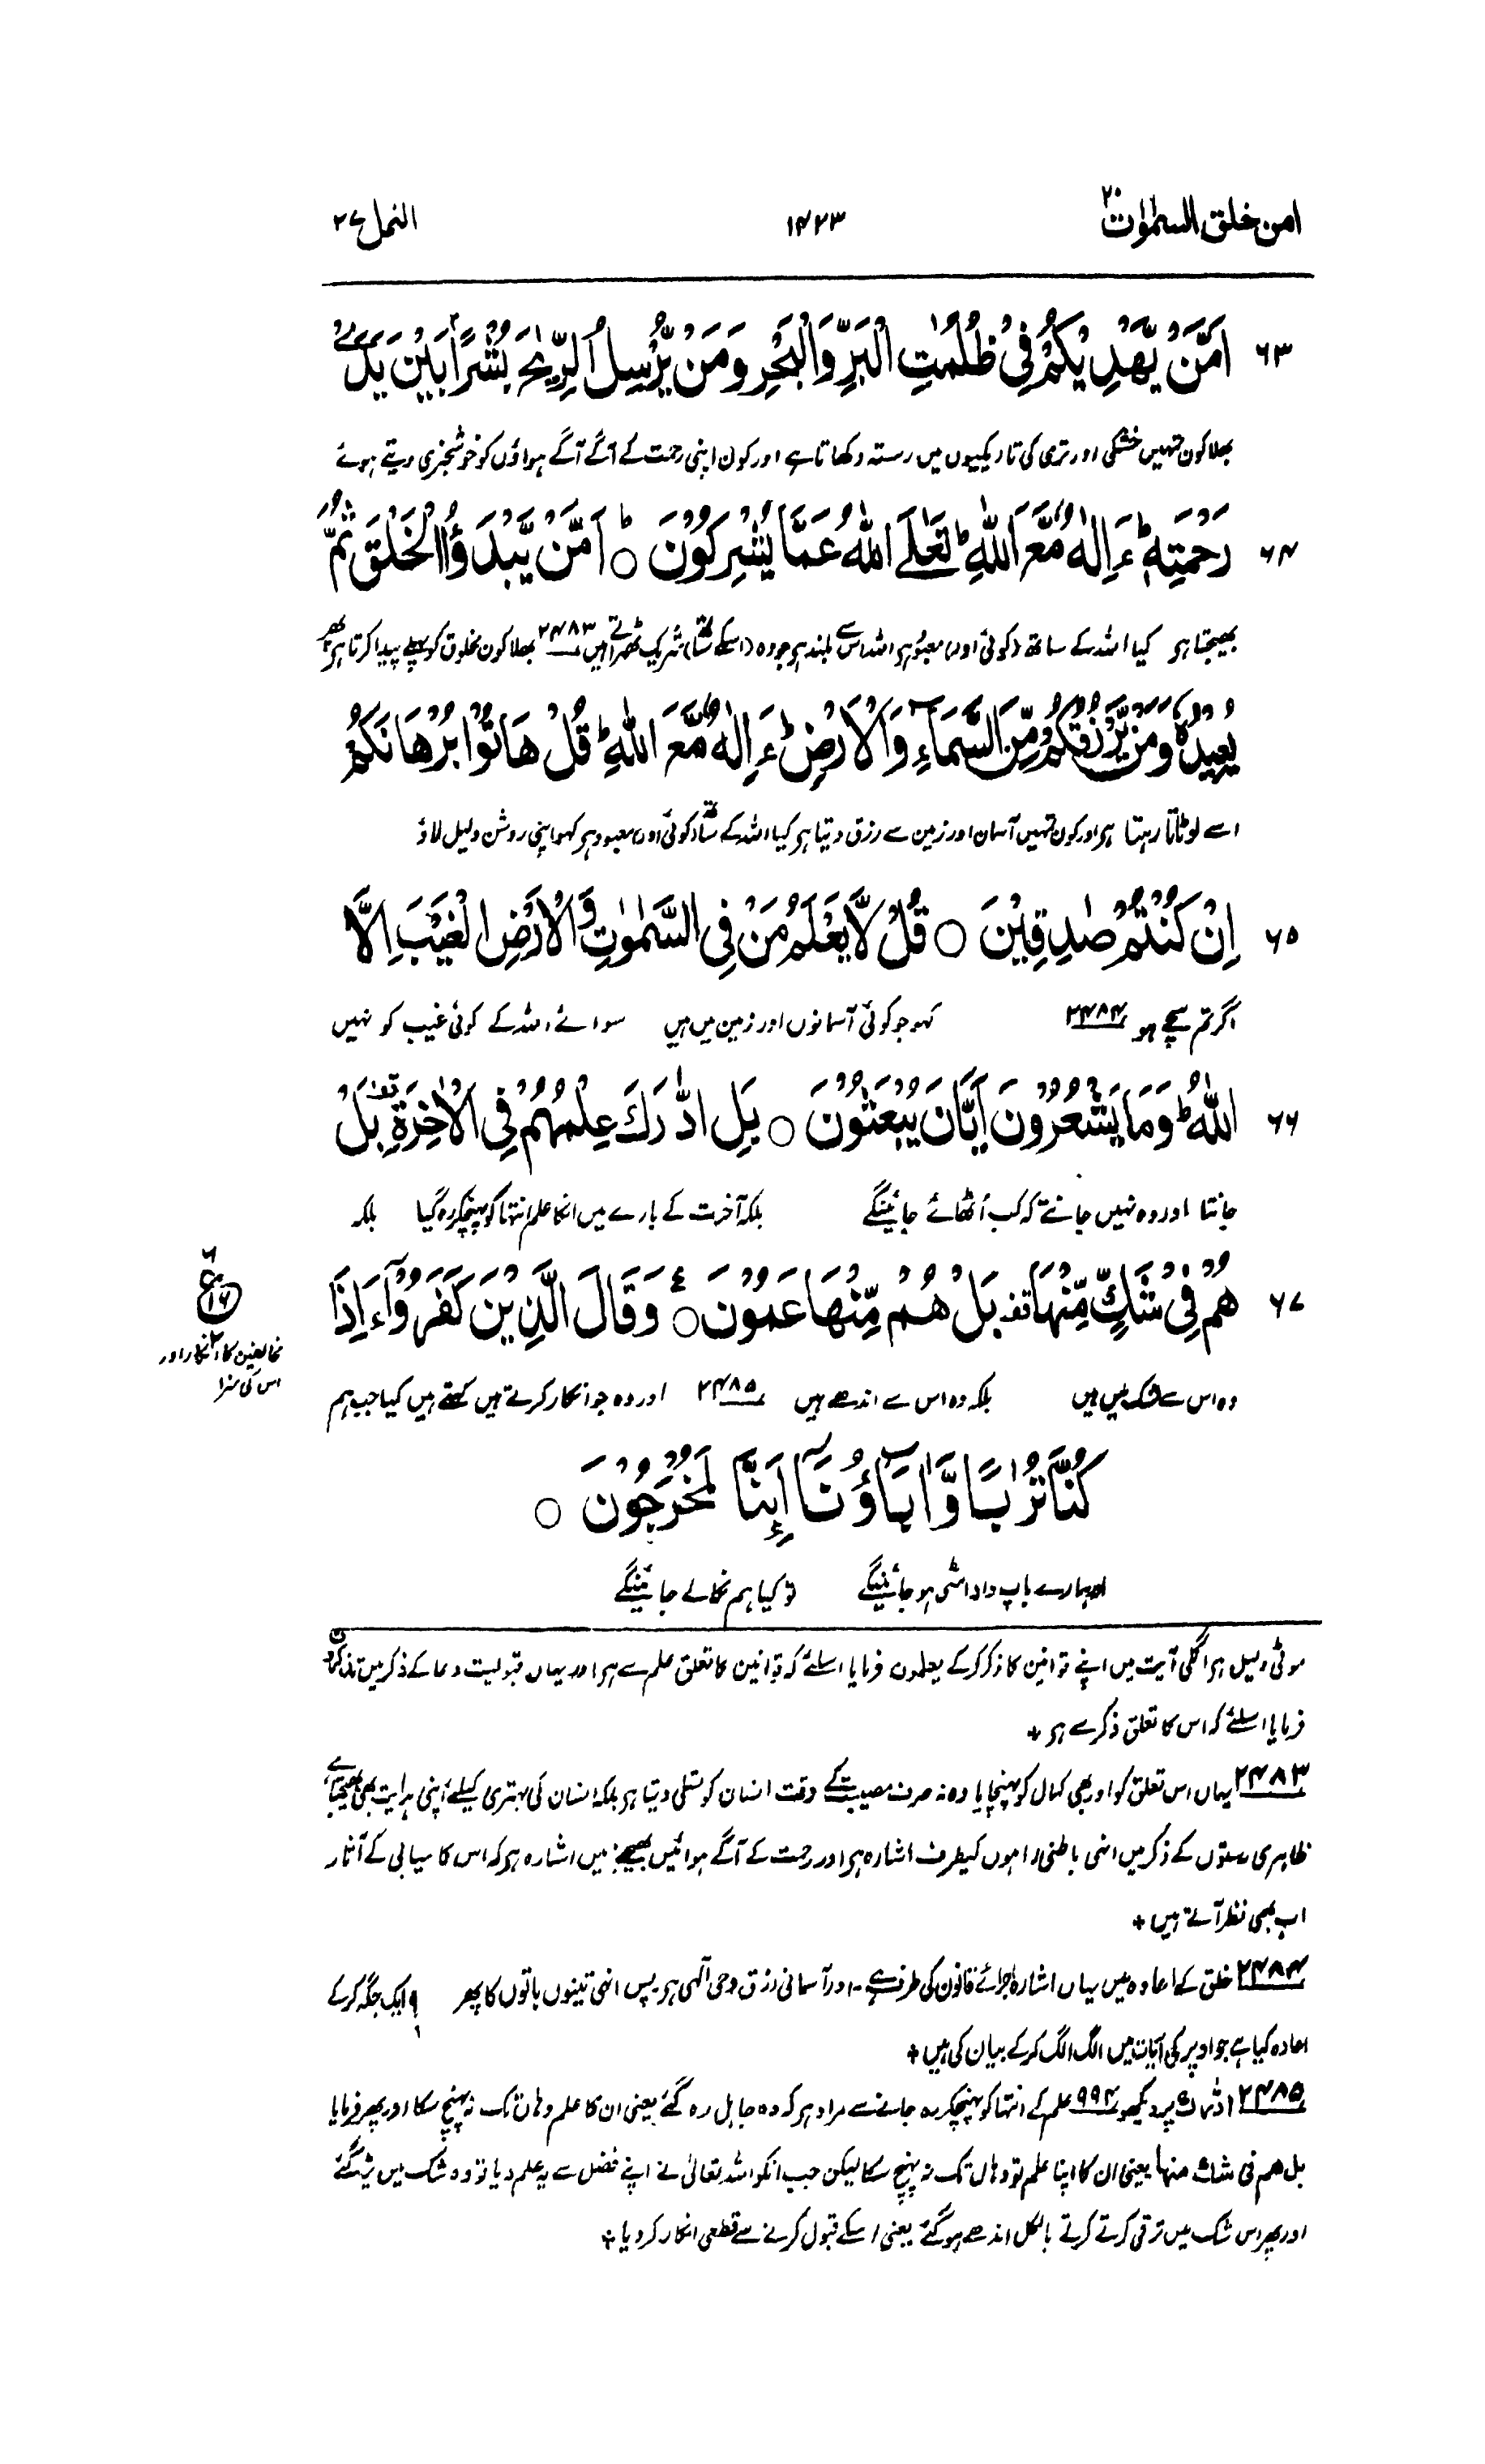 امن خلق السمٰوٰت ۲۰
۱۴۲۳
النمل ۲۷
۶۳ اَمَّنْ يَّهْدِيْكُمْ فِيْ ظُلُمٰتِ الْبَرِّ وَالْبَحْرِ وَمَنْ يُّرْسِلُ الرِّيٰحَ بُشْرًۢا بَيْنَ يَدَيْ
بھلا کون تمہیں خشکی اور تری کی تاریکیوں میں رستہ دکھاتا ہے اور کون اپنی رحمت کے آگے آگے ہواؤں کو خوشخبری دیتے ہوئے
۶۴ رَحْمَتِهٖ ؕ ءَاِلٰهٌ مَّعَ اللّٰهِ ؕ تَعٰلَى اللّٰهُ عَمَّا يُشْرِكُوْنَ ؕ ○ اَمَّنْ يَّبْدَؤُا الْخَلْقَ ثُمَّ
بھیجتا ہو کیا اللہ کے ساتھ (کوئی اور) معبود ہو اللہ اس سے بلند ہو جو وہ (اسکے ساتھ) شریک ٹھہراتے ہیں ۲۴۸۳ بھلا کون مخلوق کو پہلے پیدا کرتا ہو پھر
يُعِيْدُهٗ وَمَنْ يَّرْزُقُكُمْ مِّنَ السَّمَآءِ وَالْاَرْضِ ؕ ءَاِلٰهٌ مَّعَ اللّٰهِ ؕ قُلْ هَاتُوْا بُرْهَانَكُمْ
اسے لوٹاتا رہتا ہو اور کون تمہیں آسمان اور زمین سے رزق دیتا ہو کیا اللہ کے ساتھ کوئی اور معبود ہو کہو اپنی روشن دلیل لاؤ
۶۵ اِنْ كُنْتُمْ صٰدِقِيْنَ ○ قُلْ لَّا يَعْلَمُ مَنْ فِي السَّمٰوٰتِ وَالْاَرْضِ الْغَيْبَ اِلَّا
اگر تم سچے ہو ۲۴۸۴ کہو جو کوئی آسمانوں اور زمین میں ہیں سوائے اللہ کے کوئی غیب کو نہیں
۶۶ اللّٰهُ ؕ وَمَا يَشْعُرُوْنَ اَيَّانَ يُبْعَثُوْنَ ○ بَلِ ادّٰرَكَ عِلْمُهُمْ فِي الْاٰخِرَةِ ۫ بَلْ
جانتا اور وہ نہیں جانتے کہ کب اُٹھائے جائینگے بلکہ آخرت کے بارے میں انکا علم انتہا کو پہنچکر رہ گیا بلکہ
۶۷ هُمْ فِيْ شَكٍّ مِّنْهَا ۫ بَلْ هُمْ مِّنْهَا عَمُوْنَ ○ۧ وَقَالَ الَّذِيْنَ كَفَرُوْٓا ءَاِذَا
مخالفین کا انکار اور
اس کی سزا
وہ اس سے شک میں ہیں بلکہ وہ اس سے اندھے ہیں ۲۴۸۵ اور وہ جو انکار کرتے ہیں کہتے ہیں کیا جب ہم
كُنَّا تُرٰبًا وَّاٰبَآؤُنَآ اَئِنَّا لَمُخْرَجُوْنَ ○
اور ہمارے باپ دادا مٹی ہو جائینگے تو کیا ہم نکالے جائینگے
موٹی دلیل ہو اگلی آیت میں اپنے قوانین کا ذکر کرکے یعلمون فرمایا اسلئے کہ قوانین کا تعلق علم سے ہو اور یہاں قبولیت دعا کے ذکر میں تذکرون
فرمایا اسلئے کہ اس کا تعلق ذکر سے ہو +
۲۴۸۳ یہاں اس تعلق کو اور بھی کمال کو پہنچایا وہ نہ صرف مصیبت کے وقت انسان کو تسلی دیتا ہو بلکہ انسان کی بہتری کیلئے اپنی ہدایت بھی بھیجتا ہے
ظاہری رستوں کے ذکر میں انہی باطنی راہوں کیطرف اشارہ ہو اور رحمت کے آگے ہوائیں بھیجنے میں اشارہ ہو کہ اس کامیابی کے آثار
اب بھی نظر آتے ہیں +
۲۴۸۴ خلق کے اعادہ میں یہاں اشارہ اجرائے قانون کی طرف ہے۔ اور آسمانی رزق وحی الٰہی ہو پس انہی تینوں باتوں کا پھر ایک جگہ کرکے
اعادہ کیا ہے جو اوپر کی آیات میں الگ الگ کرکے بیان کی ہیں +
۲۴۸۵ ادّٰرك پر دیکھو ۹۹۴ علم کے انتہا کو پہنچکر رہ جانے سے مراد ہو کہ وہ جاہل رہ گئے یعنی ان کا علم وہاں تک نہ پہنچ سکا اور پھر فرمایا
بل هم فی شك منها یعنی ان کا اپنا علم تو وہاں تک نہ پہنچ سکا لیکن جب انکو اللہ تعالیٰ نے اپنے فضل سے یہ علم دیا تو وہ شک میں پڑ گئے
اور پھر اس شک میں ترقی کرتے کرتے بالکل اندھے ہو گئے یعنی اسکے قبول کرنے سے قطعی انکار کر دیا +